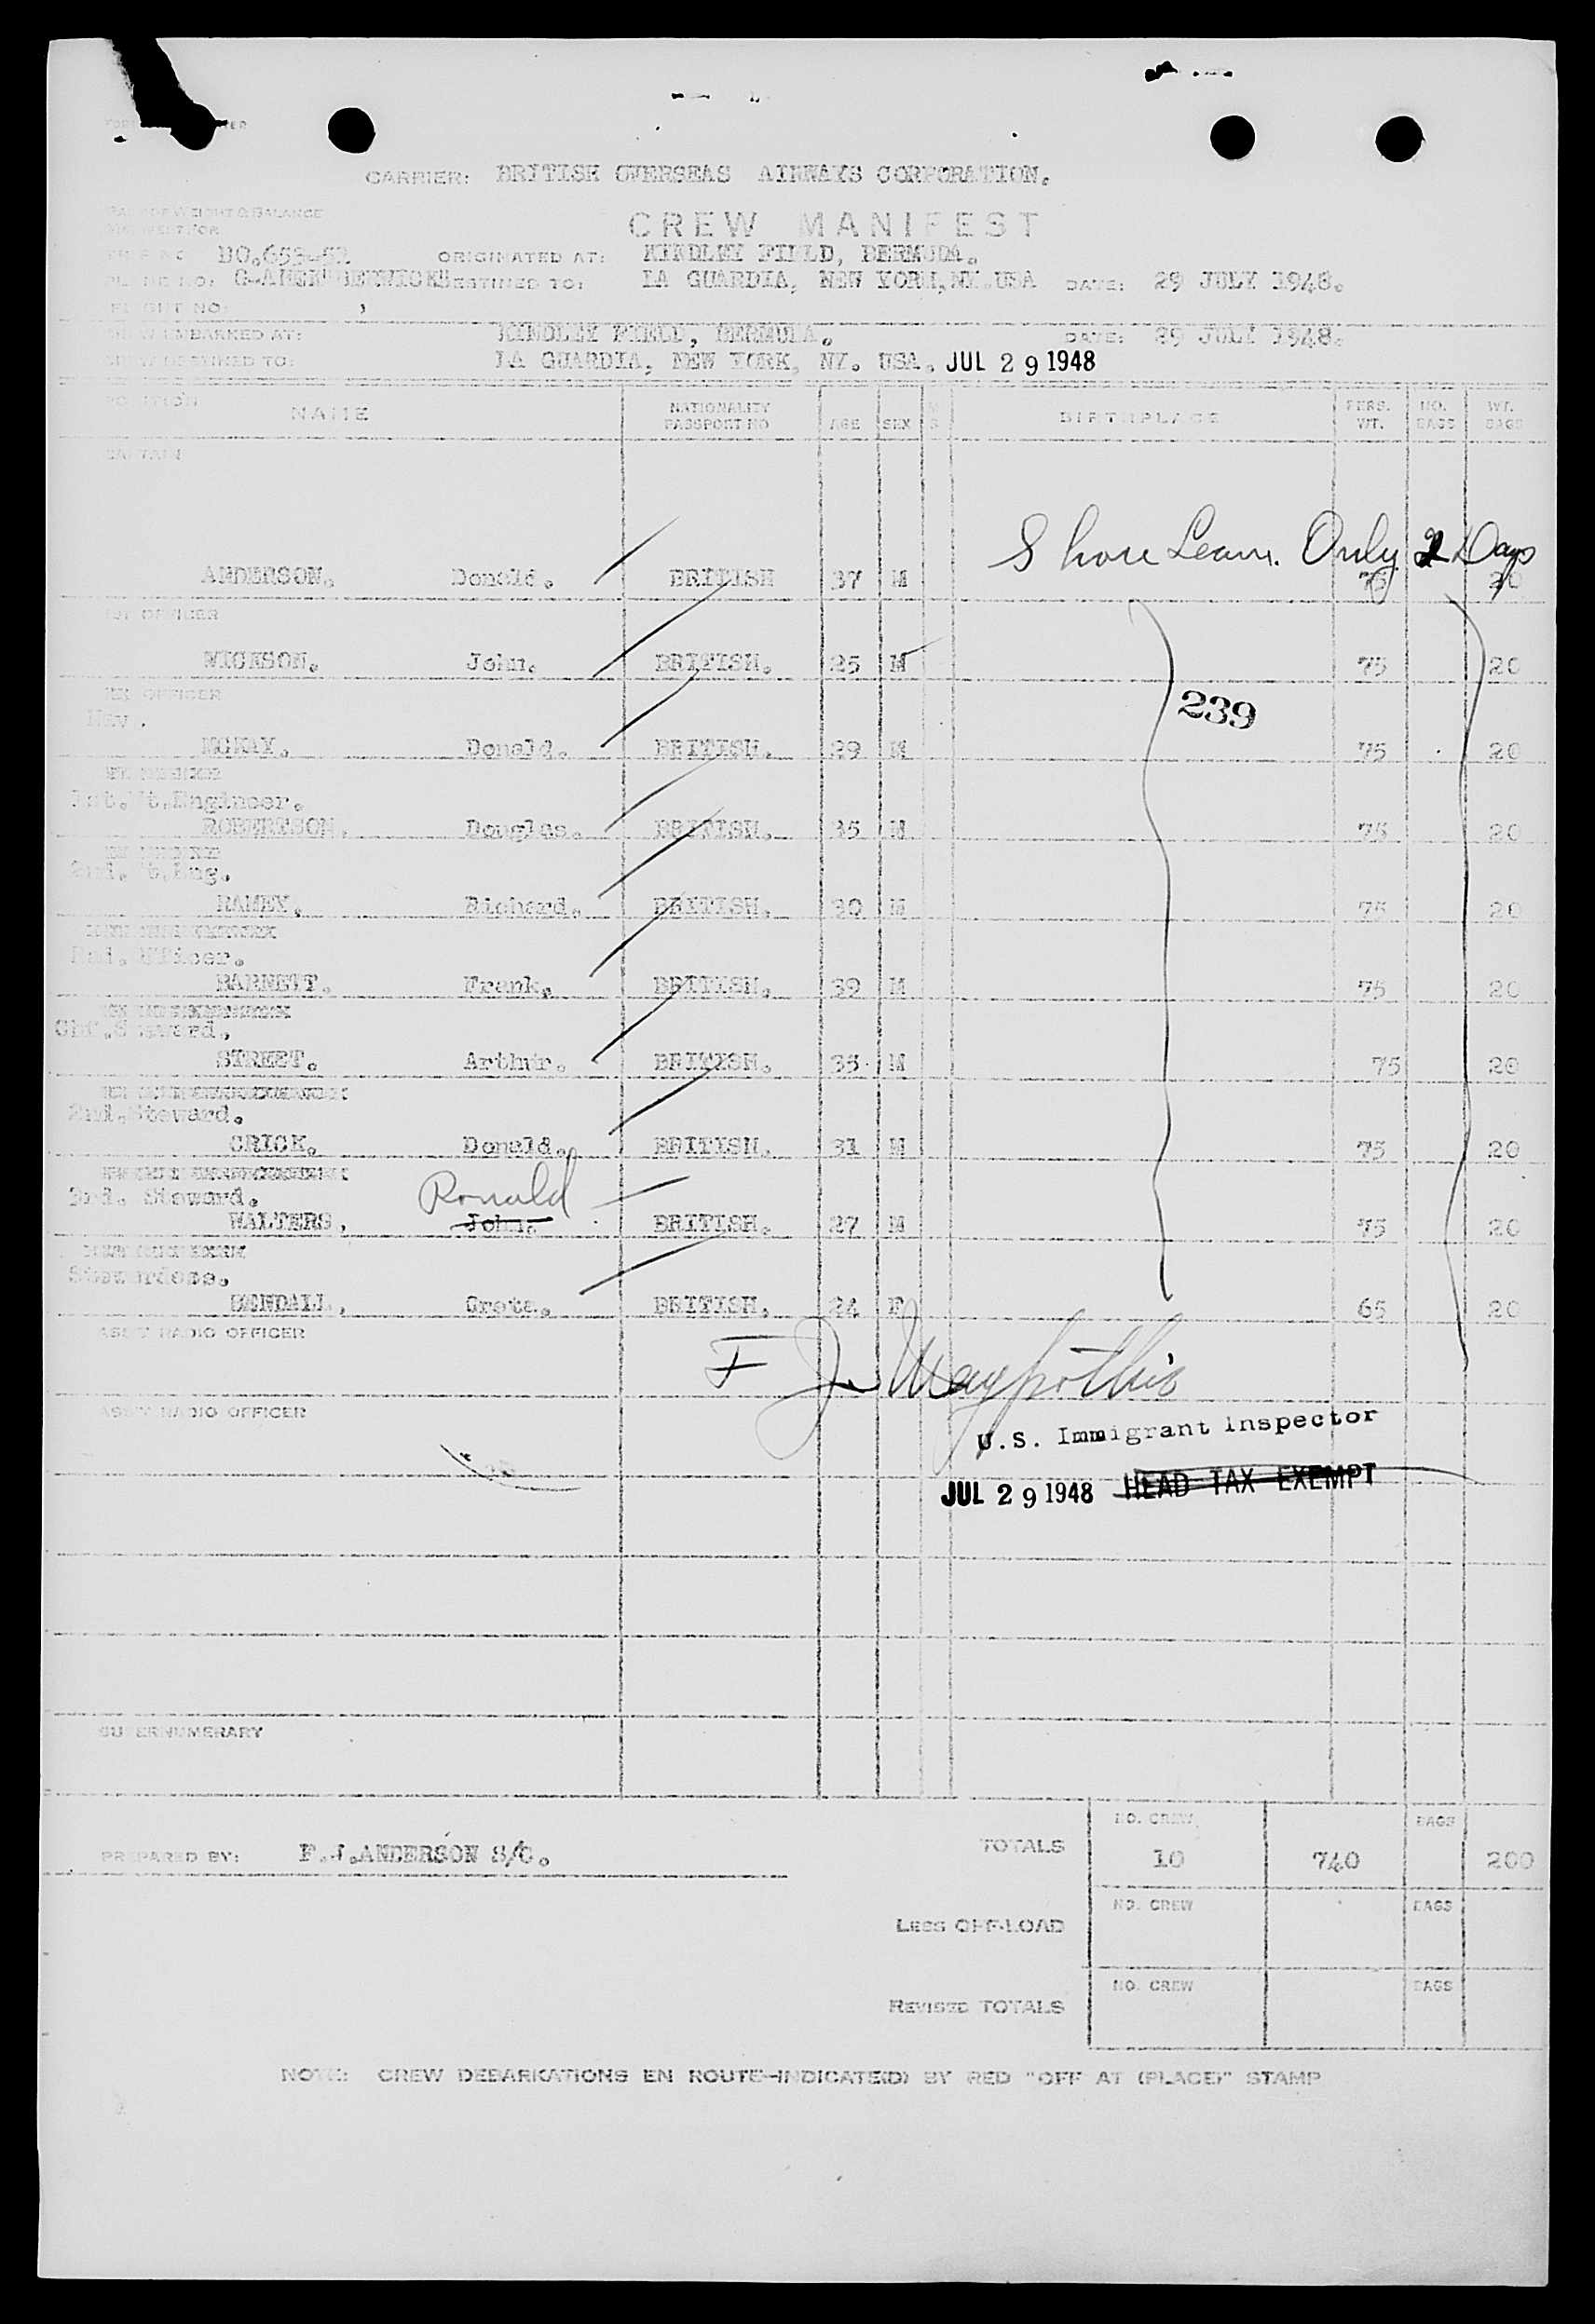 CARRIER: BRITISH OVERSEAS AIRWAYS CORPORATION.
WEIGHT & BALANCE
CREW MANIFEST
BO.653 ORIGINATED AT: KINDLEY FIELD, BERMUDA.
PLANE NO: DESTINED TO: LA GUARDIA, NEW YORK, NY. USA DATE: 29 JULY 1948.
FLIGHT NO:
CREW EMBARKED AT: KINDLEY FIELD, BERMUDA. DATE: 29 JULY 1948.
CREW DESTINED TO: LA GUARDIA, NEW YORK, NY. USA. JUL 29 1948
POSITION NAME NATIONALITY PASSPORT NO AGE SEX BIRTHPLACE PERS. WT. NO. BAGS WT. BAGS
CAPTAIN
Shore Leave Only 2 Days
ANDERSON. Donald. BRITISH 37 M 75 20
1ST OFFICER
John. BRITISH. 25 M 75 20
OFFICER
Nav.
239
McKAY. Donald. BRITISH. 29 M 75 20
Engineer.
ROBERTSON. Douglas. BRITISH. 35 M 75 20
Eng.
RAMEY. Richard. BRITISH. 30 M 75 20
Officer.
BARNETT. Frank. BRITISH. 39 M 75 20
Steward.
STREET. Arthur. BRITISH. 35 M 75 20
2nd. Steward.
CRICK. Donald. BRITISH. 31 M 75 20
3rd. Steward. Ronald
WALTERS, John. BRITISH. 27 M 75 20
Stewardess.
Greta. BRITISH. 24 F 65 20
ASS'T RADIO OFFICER
F J.
ASS'T RADIO OFFICER
U.S. Immigrant Inspector
JUL 29 1948 HEAD TAX EXEMPT
SUPERNUMERARY
NO. CREW BAGS
PREPARED BY: F.J.ANDERSON S/O. TOTALS 10 740 200
NO. CREW BAGS
LESS OFF-LOAD
NO. CREW BAGS
REVISED TOTALS
NOTE: CREW DEBARKATIONS EN ROUTE—INDICATE(D) BY RED "OFF AT (PLACE)" STAMP